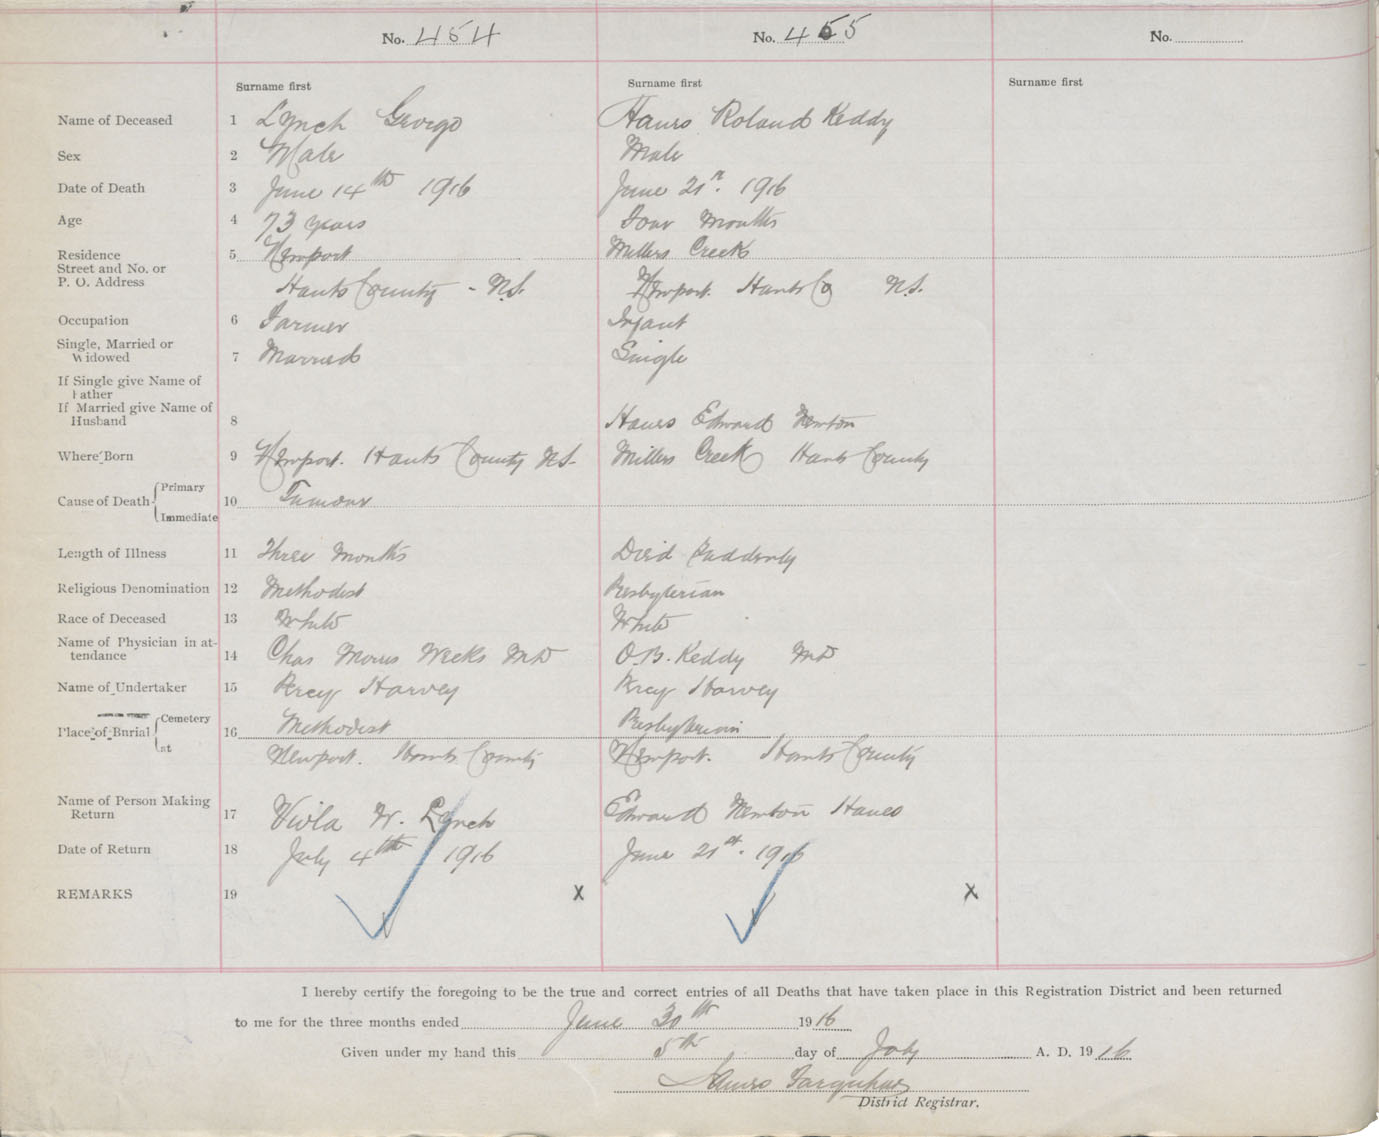 No. 454 No. 455 No.
Surname first Surname first Surname first
Name of Deceased 1 Lynch George Hanes Roland Keddy
Sex 2 Male Male
Date of Death 3 June 14th 1916 June 21st. 1916
Age 4 73 years Four Months
Residence 5 Newport Millers Creek
Street and No. or
P. O. Address Hants County - N.S. Newport. Hants Co N.S.
Occupation 6 Farmer Infant
Single, Married or
Widowed 7 Married Single
If Single give Name of
Father
If Married give Name of
Husband 8 Hanes Edward Newton
Where Born 9 Newport. Hants County N.S- Millers Creek Hants County
Cause of Death Primary 10 Tumour
Immediate
Length of Illness 11 Three Months Died Suddenly
Religious Denomination 12 Methodist Presbyterian
Race of Deceased 13 White White
Name of Physician in at-
tendance 14 Chas Morris Weeks MD O.B. Keddy MD
Name of Undertaker 15 Percy Harvey Percy Harvey
Place of Burial Cemetery 16 Methodist Presbyterian
at Newport. Hants County Newport. Hants County
Name of Person Making
Return 17 Viola W. Lynch Edward Newton Hanes
Date of Return 18 July 4th 1916 June 21st. 1916
REMARKS 19 X X
I hereby certify the foregoing to be the true and correct entries of all Deaths that have taken place in this Registration District and been returned
to me for the three months ended June 30th 1916
Given under my hand this 5th day of July A. D. 1916
James Farquhar
District Registrar.